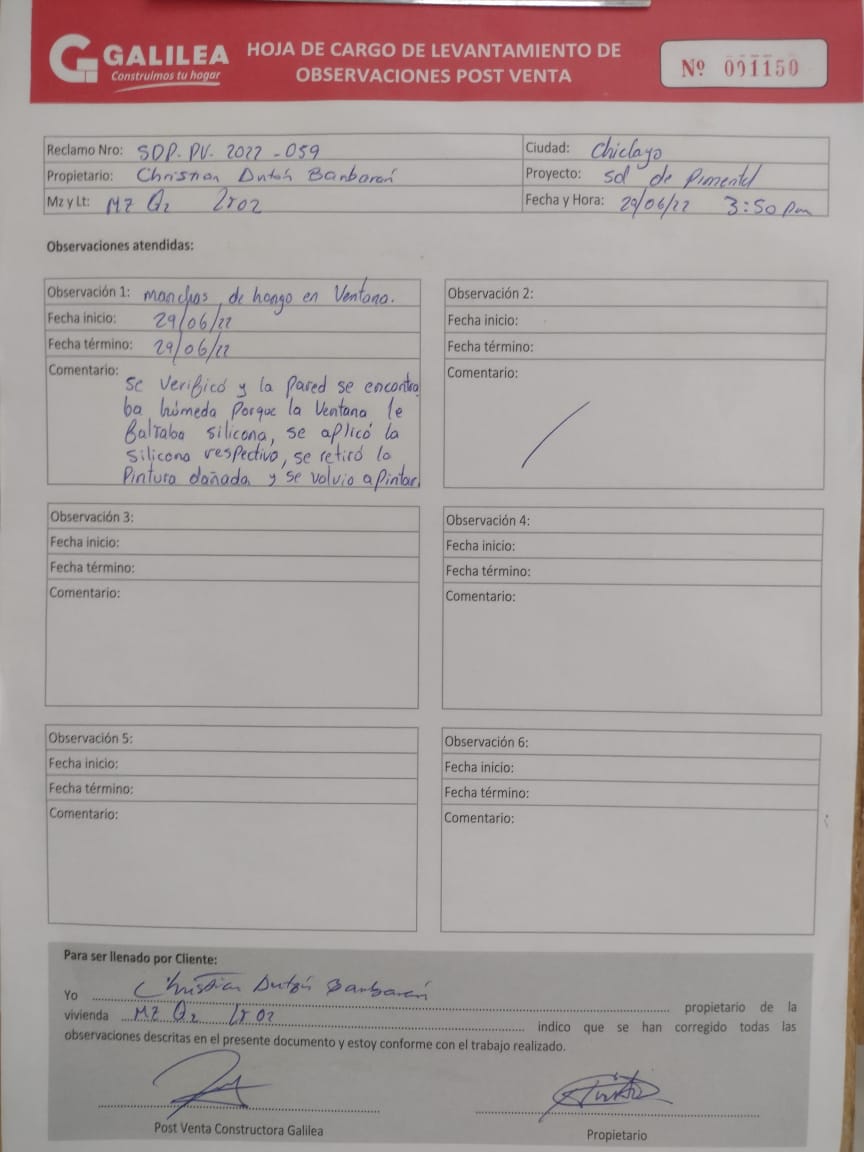 GALILEA
Construimos tu hogar
HOJA DE CARGO DE LEVANTAMIENTO DE
OBSERVACIONES POST VENTA
Nº 001150
Reclamo Nro: SDP. PV. 2022 - 059
Ciudad: Chiclayo
Propietario: Christian Dutón Banbarén
Proyecto: Sol de Pimentel
Mz y Lt: MZ Q2 LT02
Fecha y Hora: 29/06/22 3:50 pm
Observaciones atendidas:
Observación 1: manchas de hongo en Ventana.
Fecha inicio: 29/06/22
Fecha término: 29/06/22
Comentario:
Se Verificó y la Pared se encontra
ba húmeda Porque la Ventana le
Faltaba silicona, se aplicó la
silicona respectiva, se retiró la
Pintura dañada y se volvio a Pintar.
Observación 2:
Fecha inicio:
Fecha término:
Comentario:
Observación 3:
Fecha inicio:
Fecha término:
Comentario:
Observación 4:
Fecha inicio:
Fecha término:
Comentario:
Observación 5:
Fecha inicio:
Fecha término:
Comentario:
Observación 6:
Fecha inicio:
Fecha término:
Comentario:
Para ser llenado por Cliente:
Yo Christian Dutón Banbarén propietario de la
vivienda MZ Q2 LT02 indico que se han corregido todas las
observaciones descritas en el presente documento y estoy conforme con el trabajo realizado.
Post Venta Constructora Galilea
Propietario